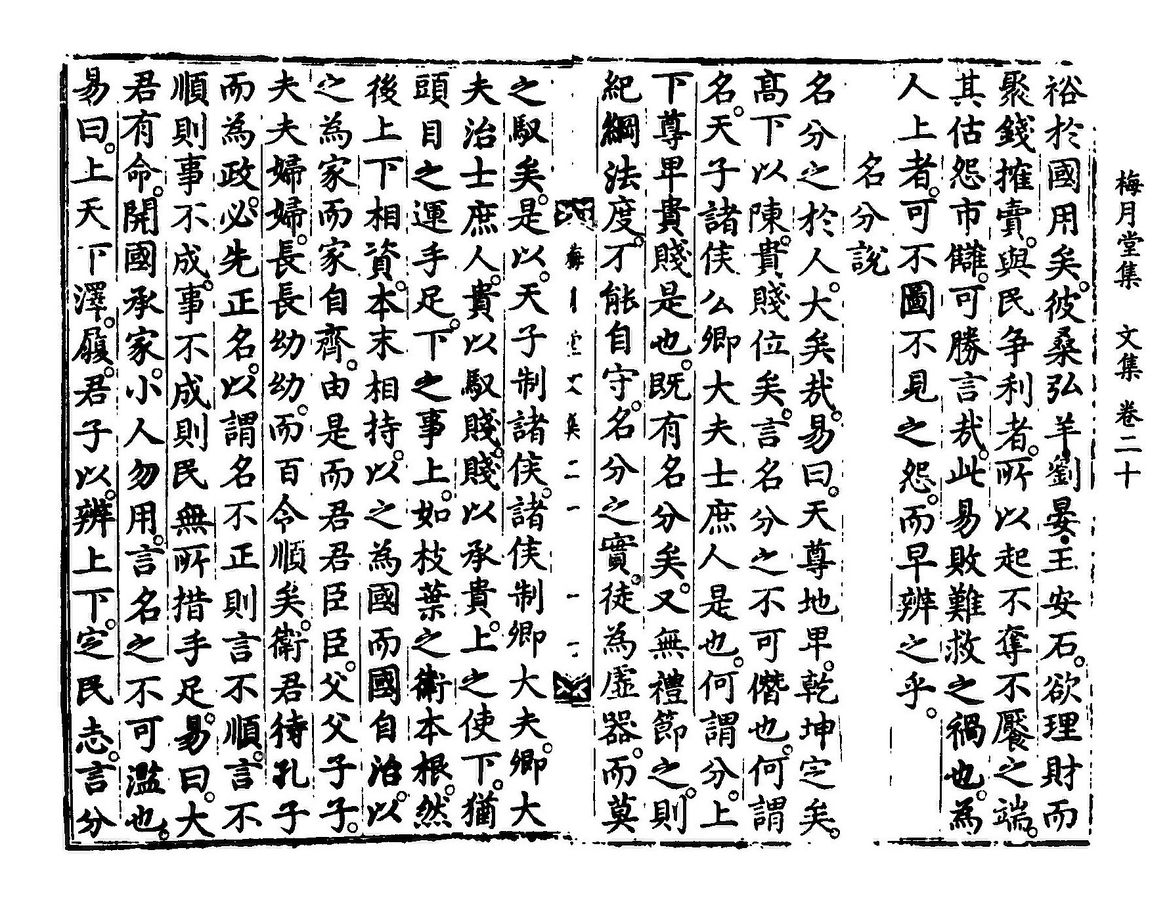 梅月堂集　文集　卷二十
裕於國用矣。彼桑弘羊・劉晏・王安石。欲理財而
聚錢搉賣。與民争利者。所以起不奪不饜之端。
其估怨市讎。可勝言㢤。此易敗難救之禍也。為
人上者。可不圖不見之怨。而早辨之乎。
名分說
名分之於人。大矣㢤。易曰。天尊地卑。乾坤定矣。
高下以陳。貴賤位矣。言名分之不可僭也。何謂
名。天子諸侯公卿大夫士庶人是也。何謂分。上
下尊卑貴賤是也。既有名分矣。又無禮節之。則
紀綱法度。不能自守。名分之實。徒為虛器。而莫
之馭矣。是以。天子制諸侯。諸侯制卿大夫。卿大
夫治士庶人。貴以馭賤。賤以承貴。上之使下。猶
頭目之運手足。下之事上。如枝葉之衛本根。然
後上下相資。本末相持。以之為國而國自治。以
之為家而家自齊。由是而君君臣臣。父父子子。
夫夫婦婦。長長幼幼。而百令順矣。衛君待孔子
而為政。必先正名。以謂名不正則言不順。言不
順則事不成。事不成則民無所措手足。易曰。大
君有命。開國承家。小人勿用。言名之不可濫也。
易曰。上天下澤。履。君子以。辨上下。定民志。言分